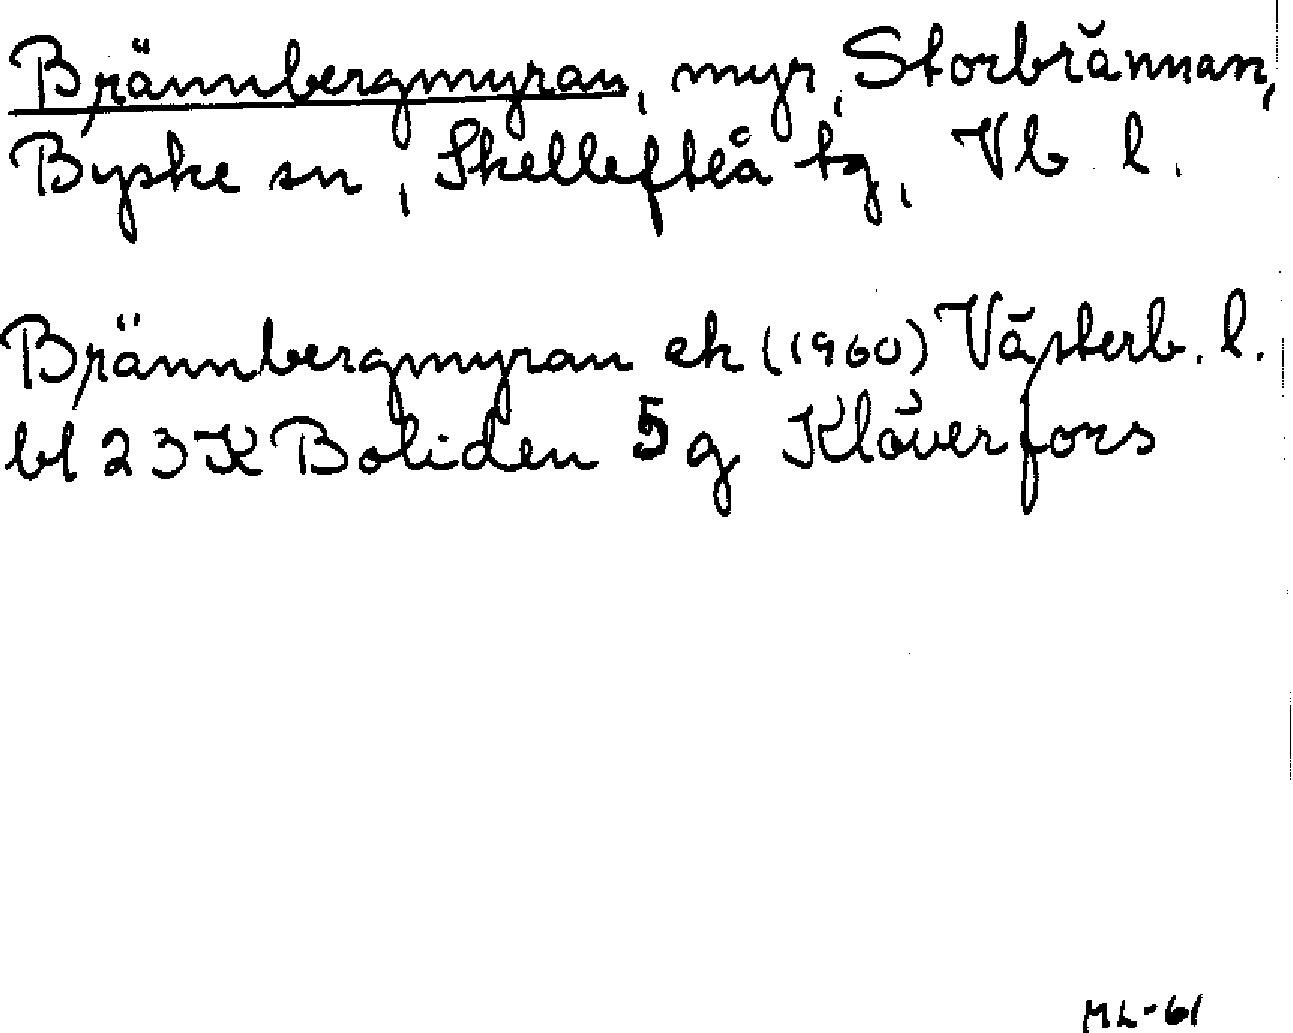 Brännbergmyran, myr, Storbrännan,
Byske sn, Skellefteå tg, Vb l.
Brännbergmyran ek (1960) Västerb. l.
bl 23 K Boliden 5 g Klöverfors
ML-61